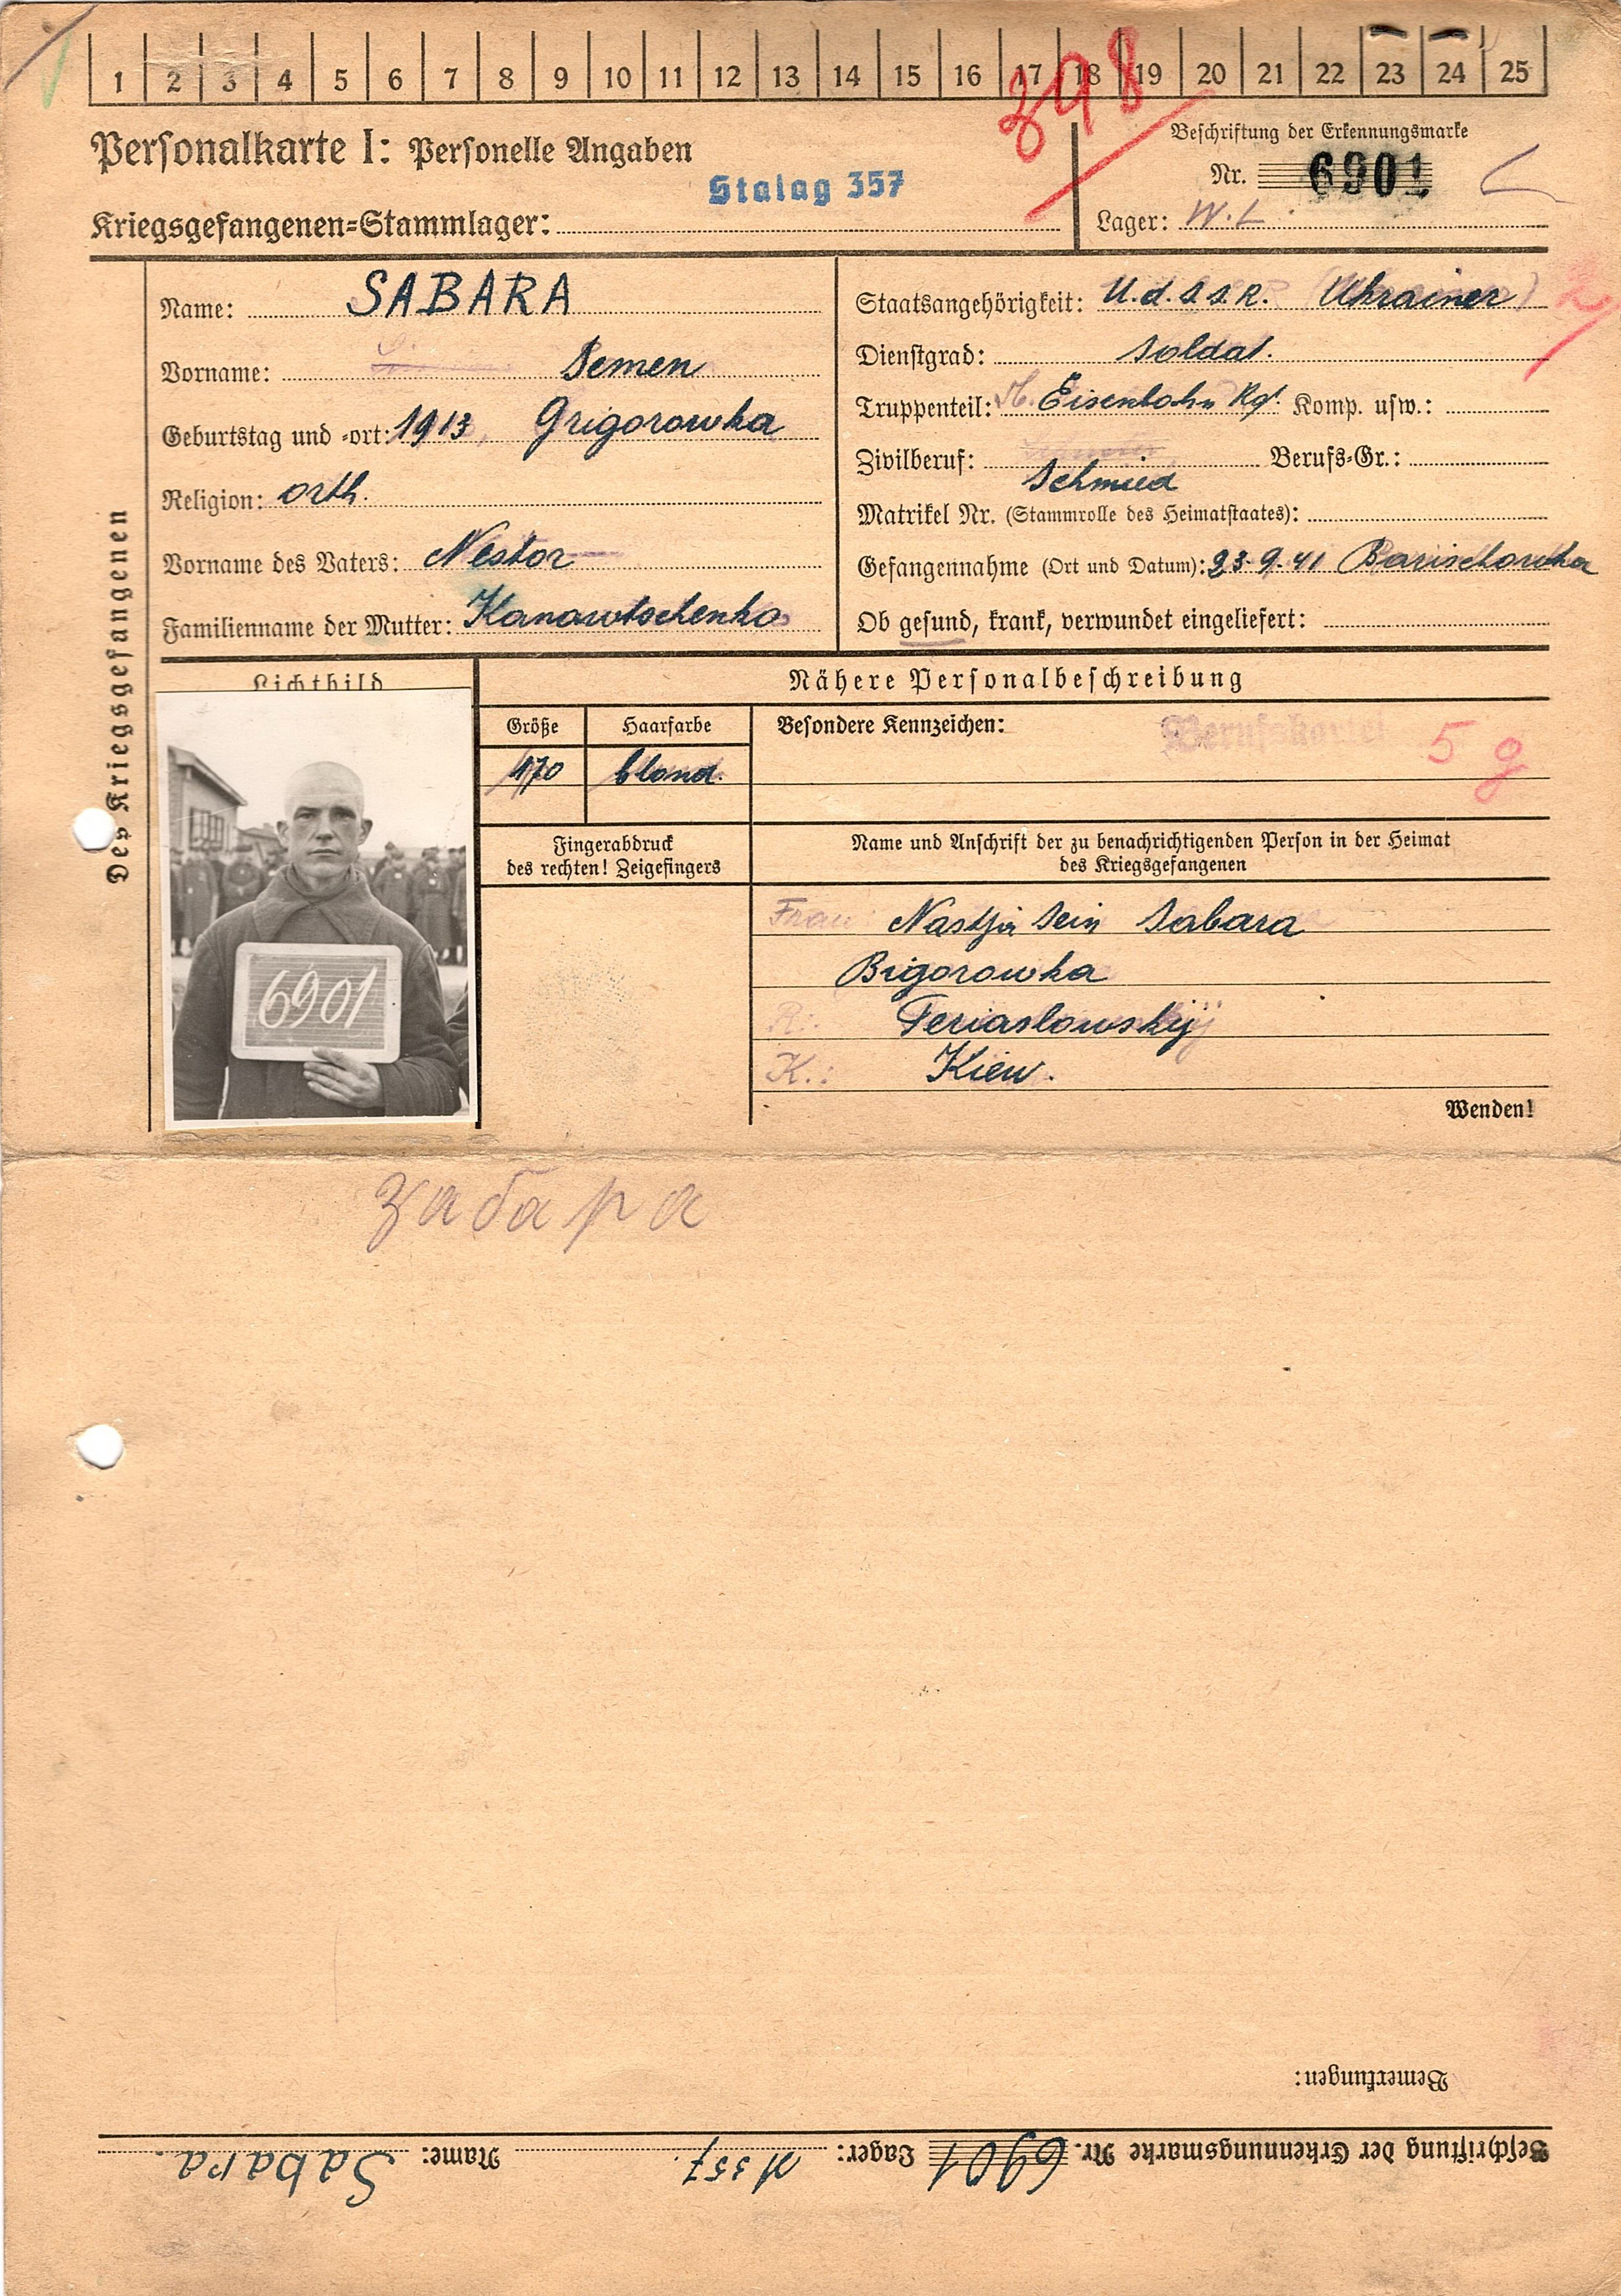 1 2 3 4 5 6 7 8 9 10 11 12 13 14 15 16 17 18 19 20 21 22 23 24 25
398
Personalkarte I: Personelle Angaben
Beschriftung der Erkennungsmarke
Nr. 6901
Stalag 357
Kriegsgefangenen-Stammlager:
Lager: W.L.
Des Kriegsgefangenen
Name: SABARA
Vorname: Semen
Geburtstag und -ort: 1913, Grigorowka
Religion: orth.
Vorname des Vaters: Nestor
Familienname der Mutter: Kanawtschenko
Staatsangehörigkeit: U.d.S.S.R. Ukrainer
Dienstgrad: Soldat.
Truppenteil: Eisenbahn Rgt. Komp. usw.:
Zivilberuf: Schmied Berufs-Gr.:
Matrikel Nr. (Stammrolle des Heimatstaates):
Gefangennahme (Ort und Datum): 23.9.41 Barischowka
Ob gesund, krank, verwundet eingeliefert:
Lichtbild
6901
Nähere Personalbeschreibung
Größe
Haarfarbe
Besondere Kennzeichen:
Berufskartei
5 g
170
blond.
Fingerabdruck
des rechten! Zeigefingers
Name und Anschrift der zu benachrichtigenden Person in der Heimat
des Kriegsgefangenen
Frau Nastja Sein Sabara
Bigorowka
R.: Feriaslowskij
K.: Kiew.
Wenden!
Забара
Bemerkungen:
Beschriftung der Erkennungsmarke Nr. 6901 Lager: M 357. Name: Sabara.